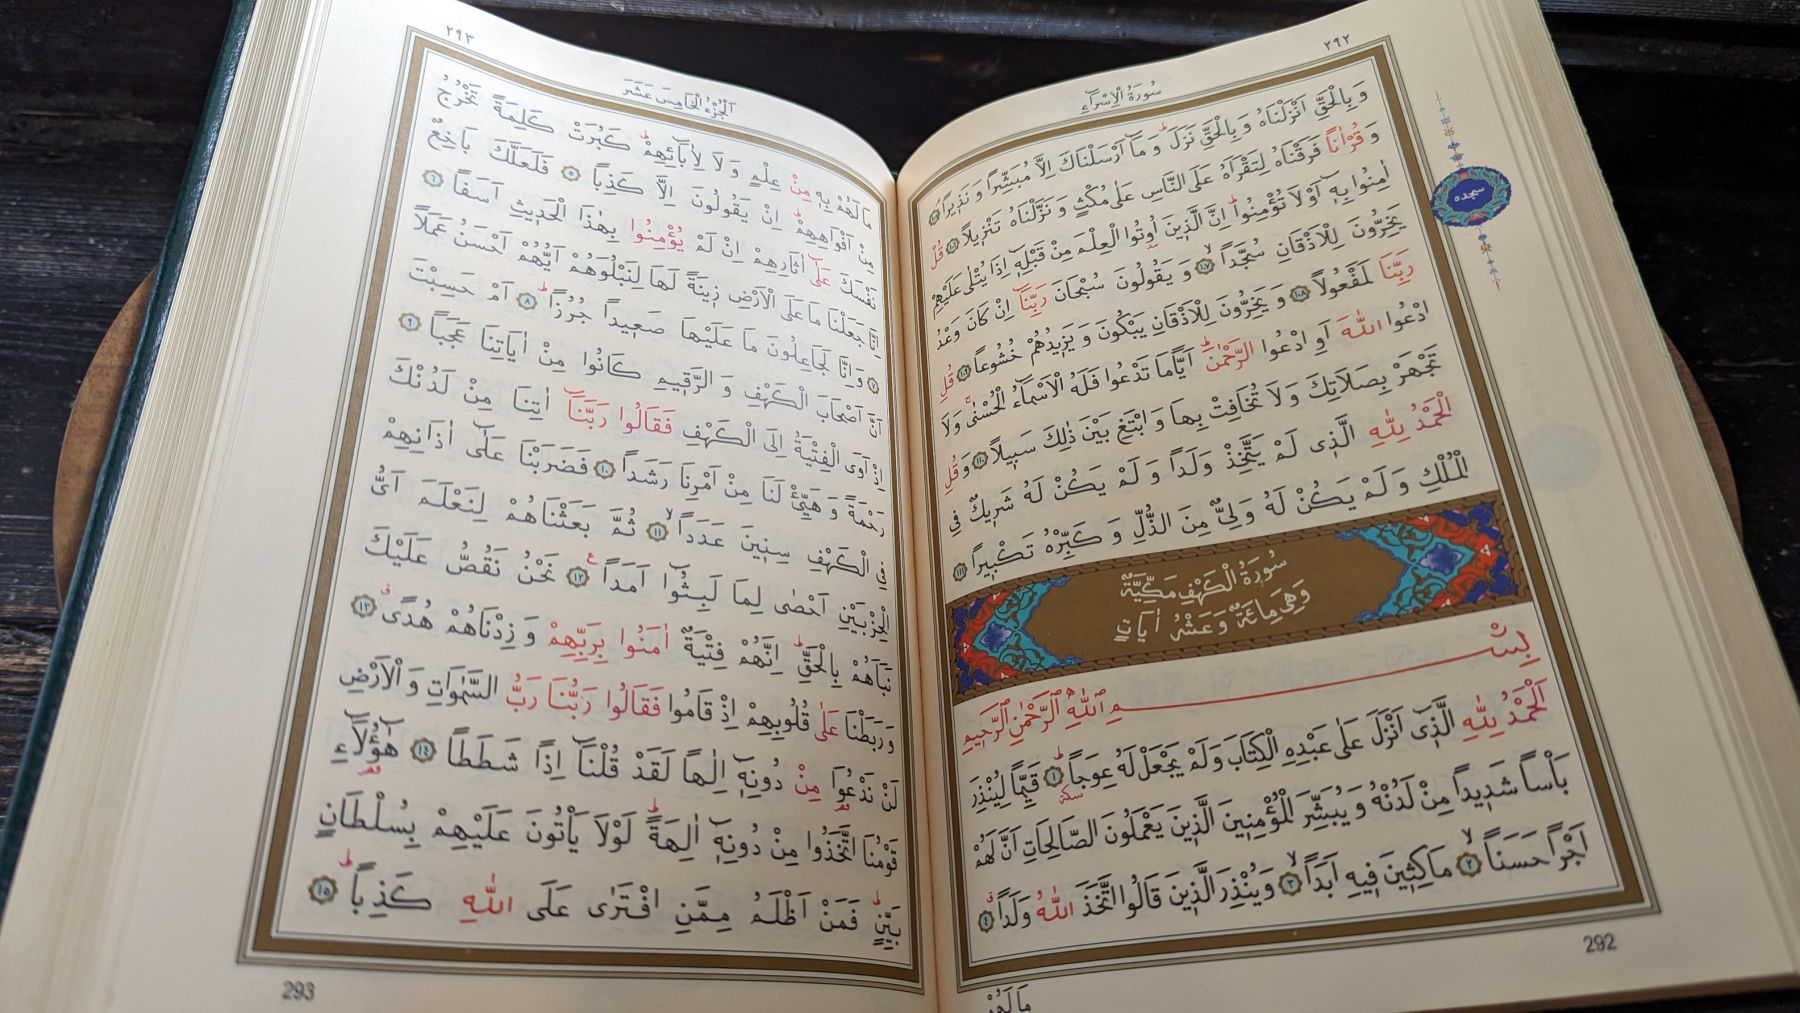 ٢٩٢
سُورَةُ الْاِسْرَاءِ
وَ بِالْحَقِّ اَنْزَلْنَاهُ وَ بِالْحَقِّ نَزَلَ وَ مَا اَرْسَلْنَاكَ اِلَّا مُبَشِّراً وَ نَذٖيراً ١٠٥
وَ قُرْاٰناً فَرَقْنَاهُ لِتَقْرَاَهُ عَلَى النَّاسِ عَلٰى مُكْثٍ وَ نَزَّلْنَاهُ تَنْزٖيلاً ١٠٦ قُلْ
اٰمِنُوا بِهٖ اَوْ لَا تُؤْمِنُوا اِنَّ الَّذٖينَ اُوتُوا الْعِلْمَ مِنْ قَبْلِهٖ اِذَا يُتْلٰى عَلَيْهِمْ
يَخِرُّونَ لِلْاَذْقَانِ سُجَّداً ١٠٧ وَ يَقُولُونَ سُبْحَانَ رَبِّنَا اِنْ كَانَ وَعْدُ
رَبِّنَا لَمَفْعُولاً ١٠٨ وَ يَخِرُّونَ لِلْاَذْقَانِ يَبْكُونَ وَ يَزٖيدُهُمْ خُشُوعاً ١٠٩ قُلِ
ادْعُوا اللّٰهَ اَوِ ادْعُوا الرَّحْمٰنَ اَيًّا مَا تَدْعُوا فَلَهُ الْاَسْمَاءُ الْحُسْنٰى وَ لَا
تَجْهَرْ بِصَلَاتِكَ وَ لَا تُخَافِتْ بِهَا وَ ابْتَغِ بَيْنَ ذٰلِكَ سَبٖيلاً ١١٠ وَ قُلِ
الْحَمْدُ لِلّٰهِ الَّذٖى لَمْ يَتَّخِذْ وَلَداً وَ لَمْ يَكُنْ لَهُ شَرٖيكٌ فِى
الْمُلْكِ وَ لَمْ يَكُنْ لَهُ وَلِىٌّ مِنَ الذُّلِّ وَ كَبِّرْهُ تَكْبٖيراً ١١١
سجده
سُورَةُ الْكَهْفِ مَكِّيَّةٌ
وَهِىَ مِائَةٌ وَ عَشْرُ اٰيَاتٍ
بِسْمِ اللّٰهِ الرَّحْمٰنِ الرَّحٖيمِ
اَلْحَمْدُ لِلّٰهِ الَّذٖى اَنْزَلَ عَلٰى عَبْدِهِ الْكِتَابَ وَ لَمْ يَجْعَلْ لَهُ عِوَجاً ١ سكته قَيِّماً لِيُنْذِرَ
بَاْساً شَدٖيداً مِنْ لَدُنْهُ وَ يُبَشِّرَ الْمُؤْمِنٖينَ الَّذٖينَ يَعْمَلُونَ الصَّالِحَاتِ اَنَّ لَهُمْ
اَجْراً حَسَناً ٢ مَاكِثٖينَ فٖيهِ اَبَداً ٣ وَ يُنْذِرَ الَّذٖينَ قَالُوا اتَّخَذَ اللّٰهُ وَلَداً ٤
مَا لَهُمْ
292
٢٩٣
اَلْجُزْءُ الْخَامِسَ عَشَرَ
مَا لَهُمْ بِهٖ مِنْ عِلْمٍ وَ لَا لِاٰبَائِهِمْ كَبُرَتْ كَلِمَةً تَخْرُجُ
مِنْ اَفْوَاهِهِمْ اِنْ يَقُولُونَ اِلَّا كَذِباً ٥ فَلَعَلَّكَ بَاخِعٌ
نَفْسَكَ عَلٰى اٰثَارِهِمْ اِنْ لَمْ يُؤْمِنُوا بِهٰذَا الْحَدٖيثِ اَسَفاً ٦
اِنَّا جَعَلْنَا مَا عَلَى الْاَرْضِ زٖينَةً لَهَا لِنَبْلُوَهُمْ اَيُّهُمْ اَحْسَنُ عَمَلاً
٧ وَ اِنَّا لَجَاعِلُونَ مَا عَلَيْهَا صَعٖيداً جُرُزاً ٨ اَمْ حَسِبْتَ
اَنَّ اَصْحَابَ الْكَهْفِ وَ الرَّقٖيمِ كَانُوا مِنْ اٰيَاتِنَا عَجَباً ٩
اِذْ اَوَى الْفِتْيَةُ اِلَى الْكَهْفِ فَقَالُوا رَبَّنَا اٰتِنَا مِنْ لَدُنْكَ
رَحْمَةً وَ هَيِّئْ لَنَا مِنْ اَمْرِنَا رَشَداً ١٠ فَضَرَبْنَا عَلٰى اٰذَانِهِمْ
فِى الْكَهْفِ سِنٖينَ عَدَداً ١١ ثُمَّ بَعَثْنَاهُمْ لِنَعْلَمَ اَىُّ
الْحِزْبَيْنِ اَحْصٰى لِمَا لَبِثُوا اَمَداً ١٢ نَحْنُ نَقُصُّ عَلَيْكَ
نَبَاَهُمْ بِالْحَقِّ اِنَّهُمْ فِتْيَةٌ اٰمَنُوا بِرَبِّهِمْ وَ زِدْنَاهُمْ هُدًى ١٣
وَ رَبَطْنَا عَلٰى قُلُوبِهِمْ اِذْ قَامُوا فَقَالُوا رَبُّنَا رَبُّ السَّمٰوَاتِ وَ الْاَرْضِ
لَنْ نَدْعُوَا مِنْ دُونِهٖ اِلٰهاً لَقَدْ قُلْنَا اِذاً شَطَطاً ١٤ هٰؤُلَاءِ
قَوْمُنَا اتَّخَذُوا مِنْ دُونِهٖ اٰلِهَةً لَوْلَا يَاْتُونَ عَلَيْهِمْ بِسُلْطَانٍ
بَيِّنٍ فَمَنْ اَظْلَمُ مِمَّنِ افْتَرٰى عَلَى اللّٰهِ كَذِباً ١٥
293